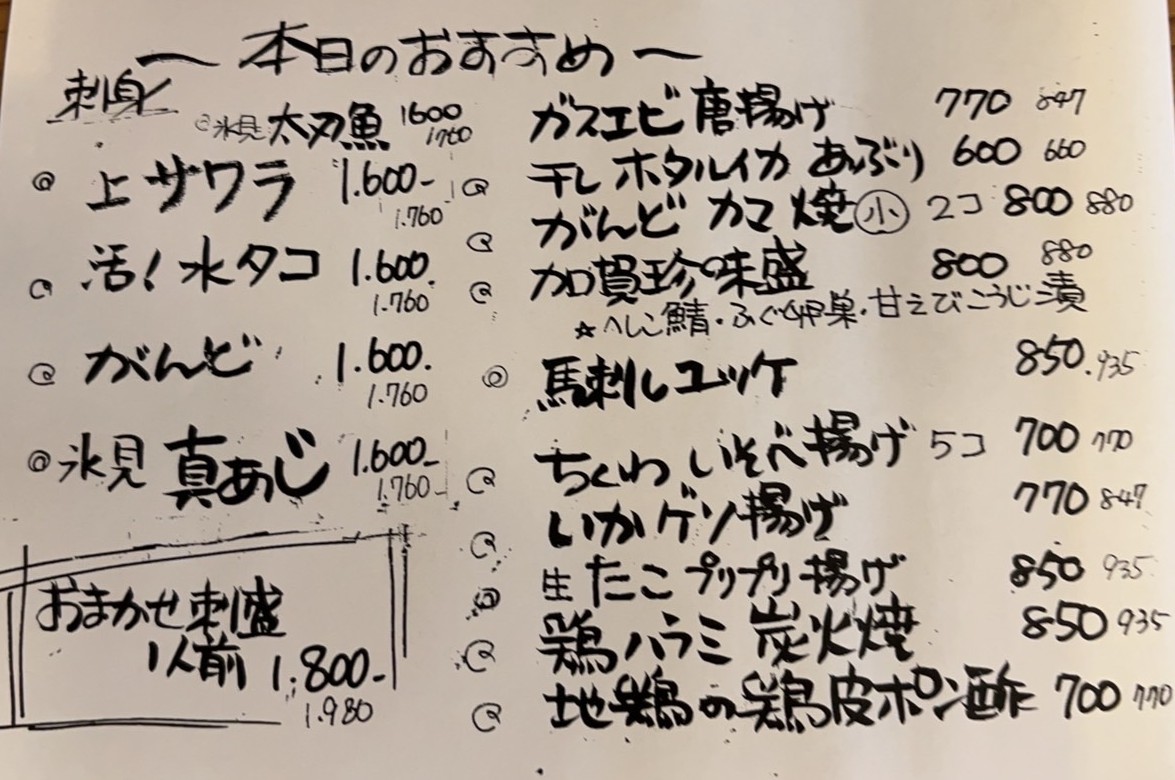 〜 本日のおすすめ 〜
刺身
◎氷見 太刀魚 1600
1760
◎ 上サワラ 1.600-
1.760
◎ 活！水タコ 1.600.
1.760
◎ がんど 1.600.
1.760
◎ 氷見 真あじ 1.600-
1.760-
おまかせ刺盛
1人前 1.800-
1.980
ガスエビ唐揚げ 770 847
◎ 干しホタルイカ あぶり 600 660
◎ がんど カマ焼(小) 2コ 800 880
◎ 加賀珍味盛 800 880
☆へしこ鯖・ふぐ卵巣・甘えびこうじ漬
◎ 馬刺しユッケ 850. 935
◎ ちくわ いそべ揚げ 5コ 700 770
◎ いかゲソ揚げ 770 847
◎ 生たこ プリプリ揚げ 850 935
◎ 鶏ハラミ 炭火焼 850 935
◎ 地鶏の鶏皮ポン酢 700 770